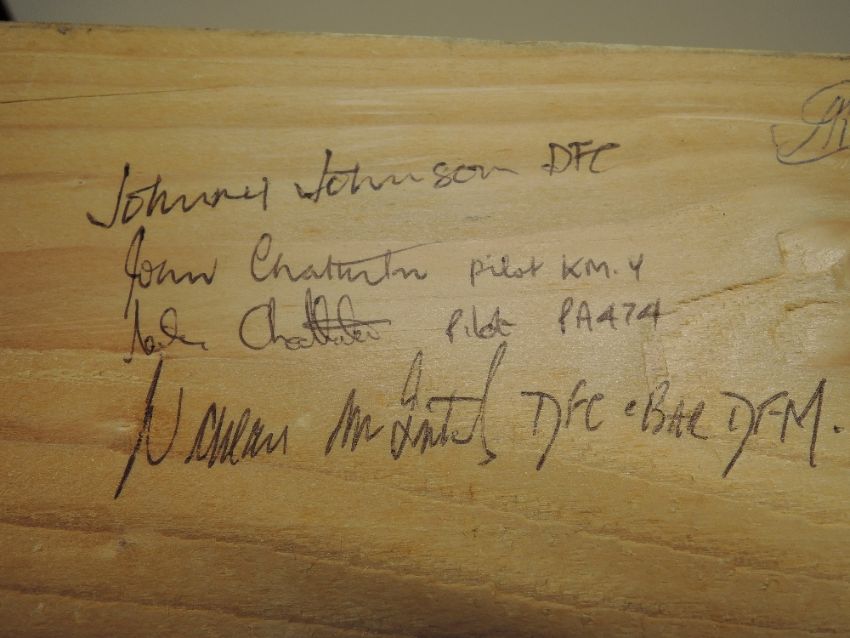 Johnny Johnson DFC
John Chatterton pilot KM.Y
Chatterton Pilot PA474
Norman McIntosh DFC & BAR DFM.